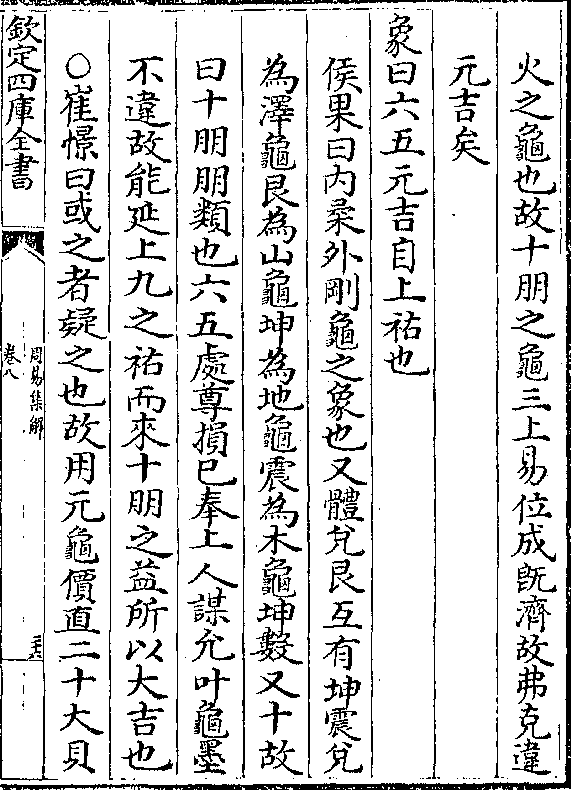 火之龜也故十朋之龜三上易位成旣濟故弗克違
元吉矣
象曰六五元吉自上祐也
侯果曰内柔外剛龜之象也又體兌艮互有坤震兌
為澤龜艮為山龜坤為地龜震為木龜坤數又十故
曰十朋朋類也六五處尊損已奉上人謀允叶龜墨
不違故能延上九之祐而來十朋之益所以大吉也
○崔憬曰或之者疑之也故用元龜價直二十大貝
欽定四庫全書
周易集解
卷八
二六